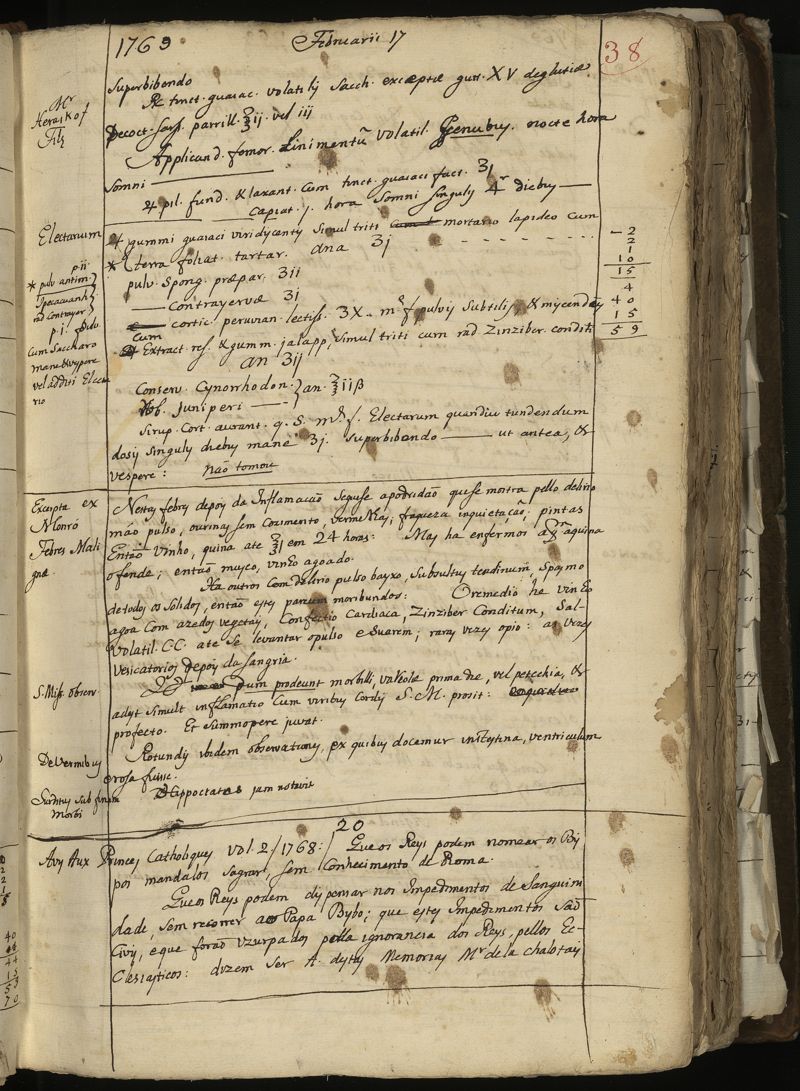 1769 Februarii 17
38
Mr
Heraskof
Filz
Superbibendo
tinct. guaiac. volatilis Sacch. exceptæ gutt. XV deglutiæ
Decoct. Sars. parrill. ℥ij. vel iij
Applicand. femor. Linimentū volatil. Genubus. nocte hora
Somni
pil. fund. & laxant. Cum tinct. guaiaci fact. ʒj
Capiat. j. hora Somni singulis 4r diebus
Electarium
gummi guaiaci viridycantis simul triti mortario lapideo cum
* terra foliat. tartar. ana ʒj
pulv. Spong. præpar. ʒij
Contrayervæ ʒj
cortic. peruvian. lectiss. ʒX. m. f. pulvis Subtiliss. & miscendus
Cum
Extract. res. & gumm. jalapp. simul triti cum rad Zinziber. conditi
an ʒij
Conserv. Cynorrhodon. } an. ℥iiß
Rob. Juniperi
Sirup. Cort. aurant. q. S. m. f. Electarium quandiu tundendum
dosis singulis diebus mane ʒj. Superbibendo ut antea, &
vespere: não tomou
p ii
* pulv antim.
Ipecacuanh
rad contrayer
p. i. f. pulv.
Cum Saccharo
mane & vespere
vel addisi Electa
rio
2
2
1
10
15
4
40
15
59
Excerpta ex
Monró
Febres Mali
gnæ
Nestas febres depois da Inflamacaõ seguese apodridaõ que se mostra pello delirio
máo pulso, ourinas sem cozimento, vermelhas, fraqueza inquietaçaõ, pintas
Entaõ vinho, quina ate ℥j em 24 horas: Mas ha enfermos a quina
ofende; entaõ muyco, vinho agoado.
Ha outros Com delirio pulso bayxo, Subsultus tendinum, Spasmo
de todos os Solidos, entaõ estes parecem moribundos: O remedio he vinho
agoa Com azedos vegetaes, Confectio Cardiaca, Zinziber Conditum, Sal
Volatil. C.C. ate se levantar o pulso e suarem; raras vezes opio: as vezes
Vesicatorios depois da Sangria.
S. Miss. observ.
dum prodeunt morbilli, variolæ primæ die, vel petechia, &
adest simult inflamatio Cum viribus Cordis S. M. prosit:
profecto. Et Summopere juvat.
De Vermibus
Rotundis ibidem observationes, ex quibus docemur intestina, ventriculum
erosa fuisse.
Surditas sub finem
Morbi
Hippocrates jam notavit
20
Avis Aux Princes Catholiques vol. 2/1768: Que os Reys podem nomear os Bis
pos mandalos Sagrar, sem Conhecimento de Roma.
Que os Reys podem dispensar nos Impedimentos de Sanguini
dade, sem recorrer ao Papa Bispo; que estes Impedimentos saõ
Civis, e que foraõ Uzurpados pella ignorancia dos Reys, pellos Ec-
Clesiasticos: dizem ser A. destas Memorias Mr. de la Chalotais